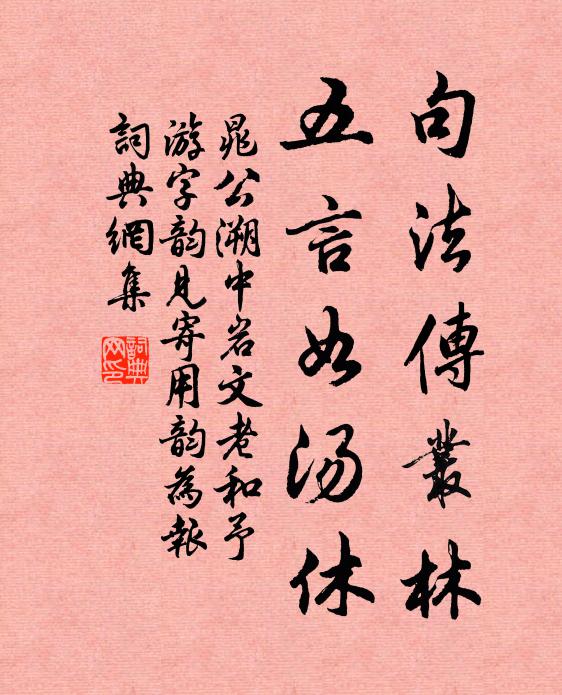 句法傳叢林
五言如湯休
晁公溯中岩文老和予
游字韵見寄用韵為報
詞典網集
詞典網印